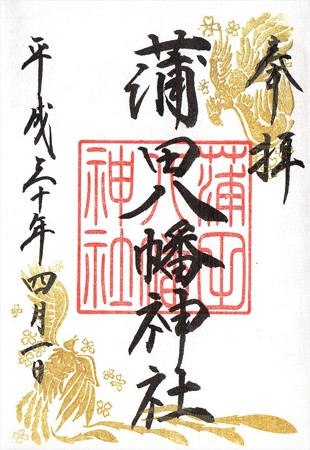 奉拝
蒲田八幡神社
蒲田
八幡
神社
平成三十年四月一日